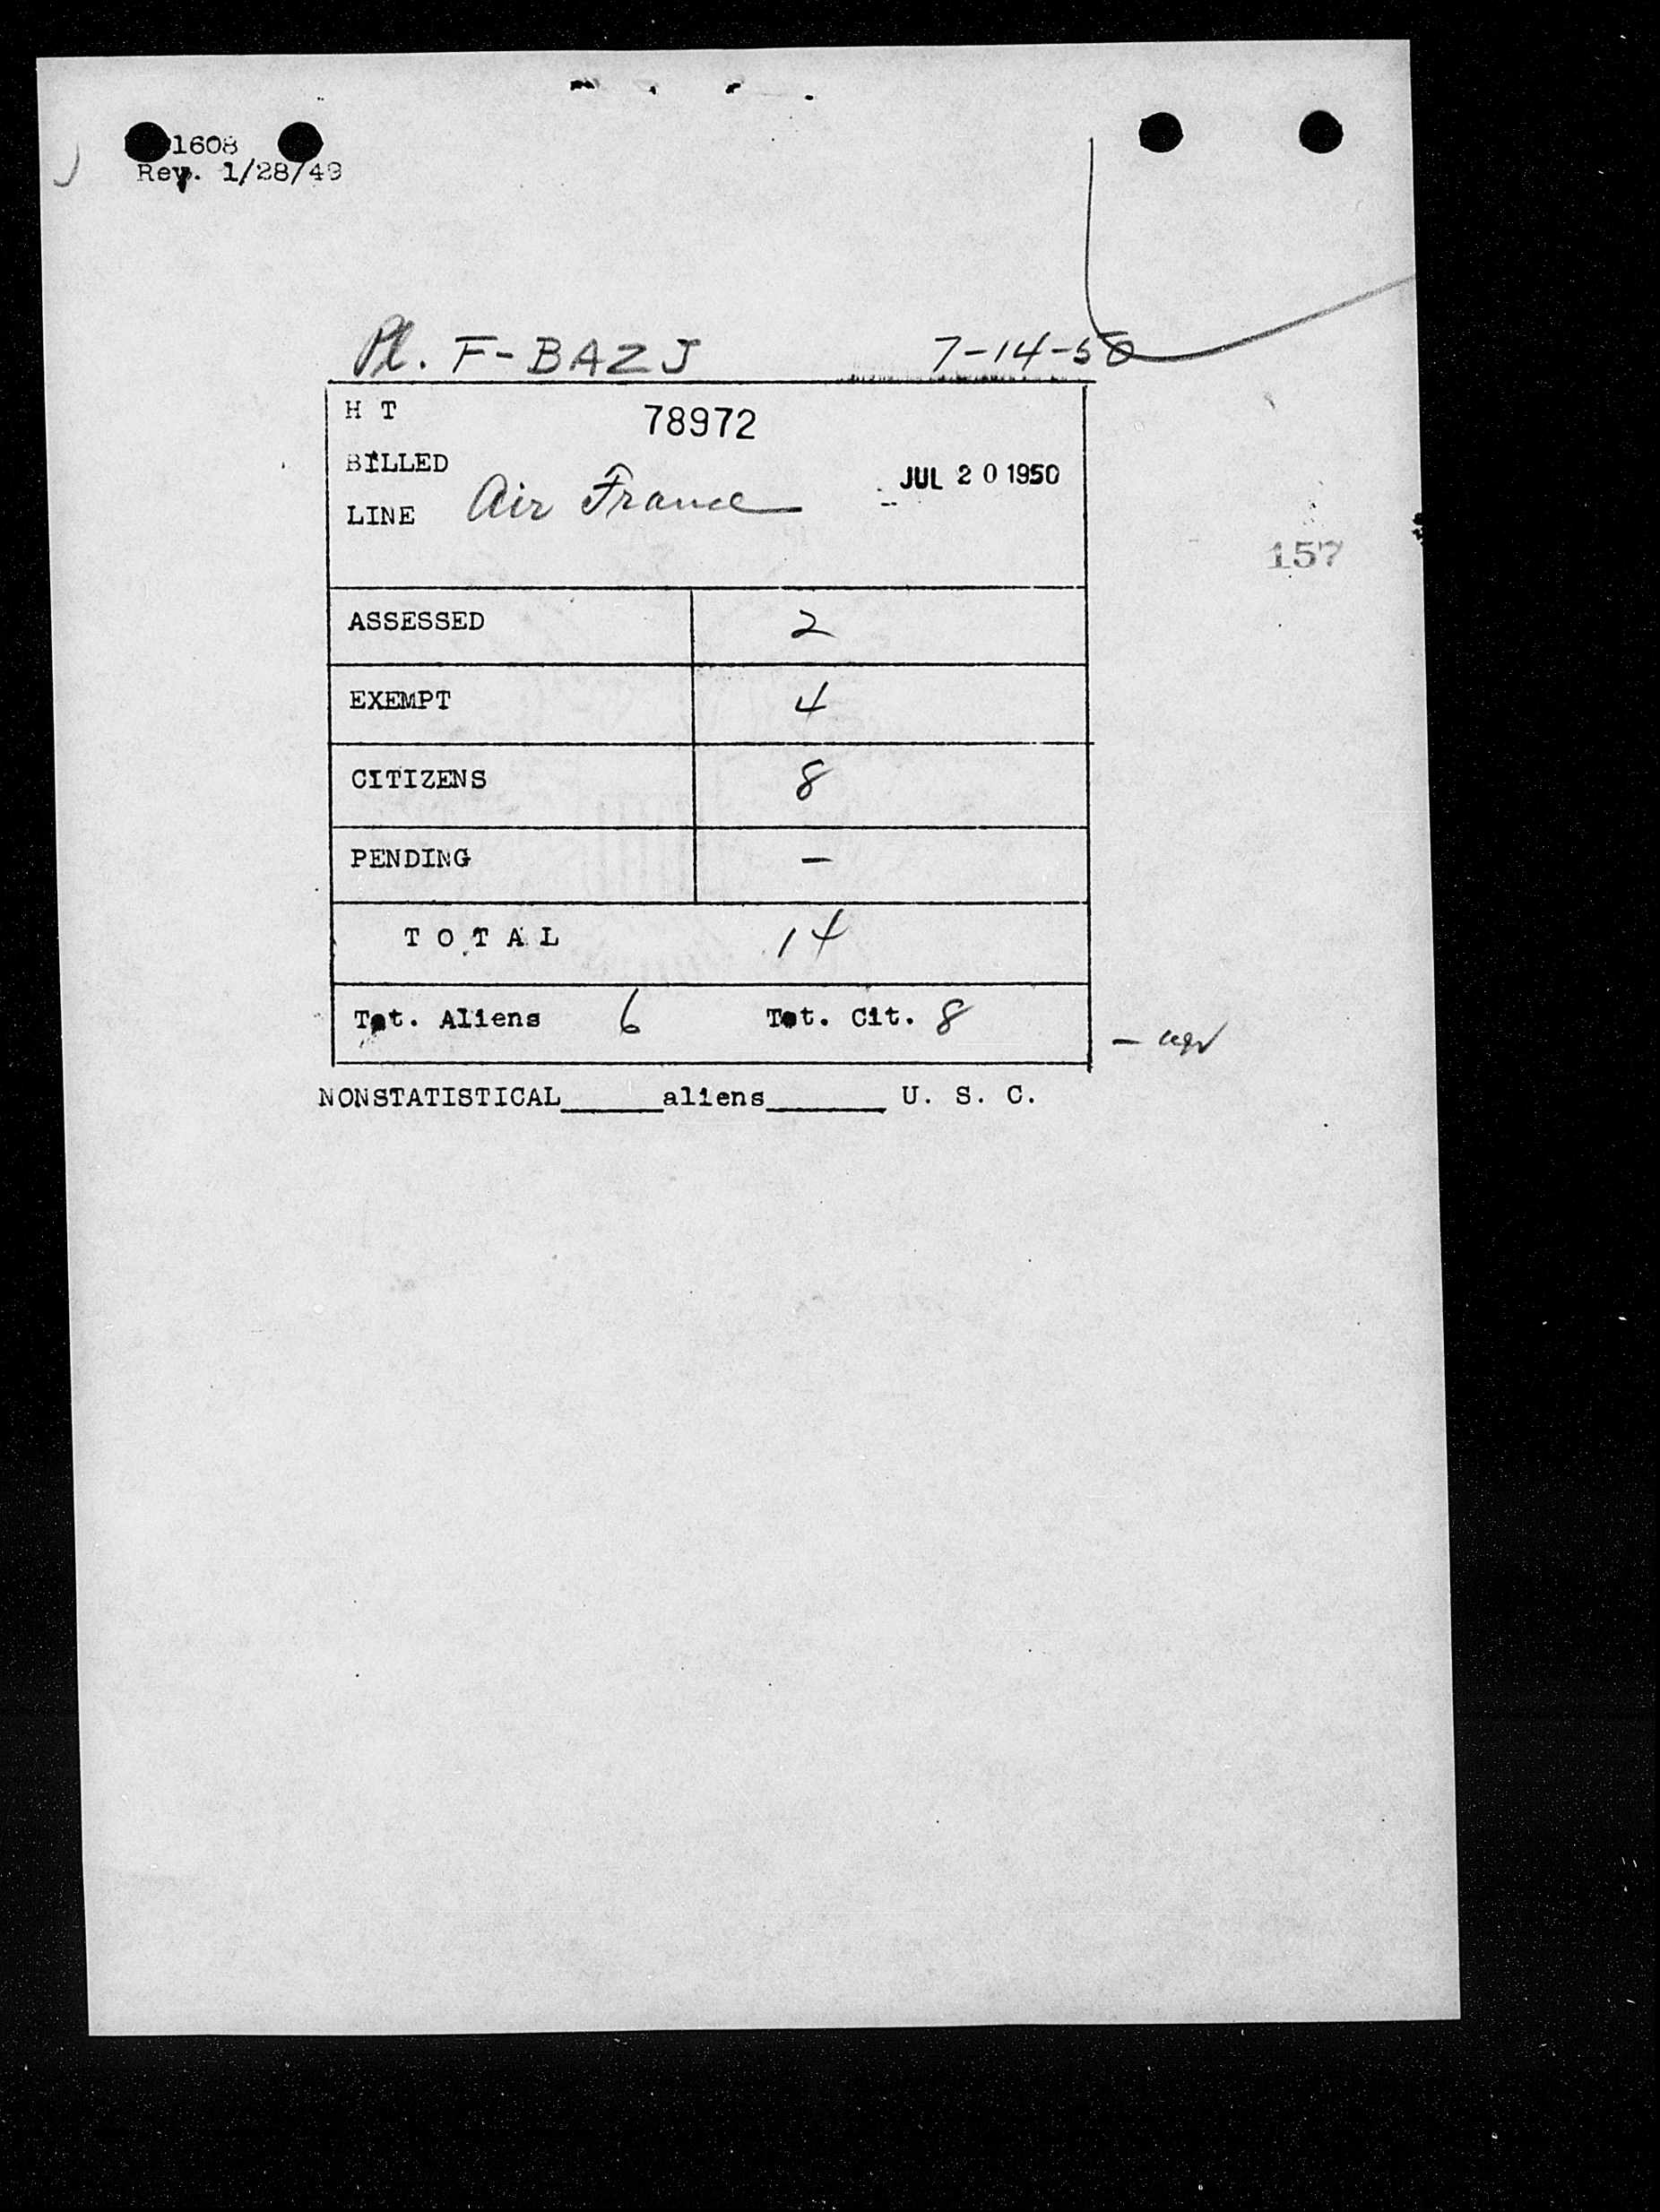 1608
Rev. 1/28/49
Pl. F-BAZJ 7-14-50
H T 78972
BILLED
JUL 20 1950
LINE Air France
157
ASSESSED 2
EXEMPT 4
CITIZENS 8
PENDING —
TOTAL 14
Tot. Aliens 6 Tot. Cit. 8
NONSTATISTICAL_____aliens______ U. S. C.